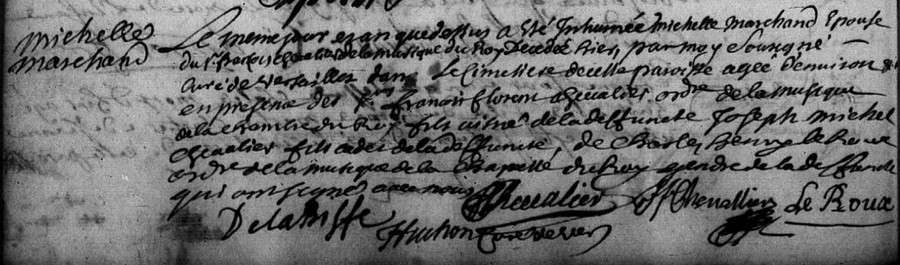 Michelle
Marchand
Le meme jour et an que dessus a été Inhumée Michelle Marchand Epouse
du Sr francois chevalier de la musique du Roy Decedée hier, par moy Sousigné
Curé de Versailles dans Le Cimetiere de cette paroisse agée d'environ
en presence des Sr francois florent chevalier ordre de la musique
de la chambre du Roy fils aisné de la deffuncte Joseph Michel
chevalier fils cadet de la deffuncte, de Charles Henry le Roux
ordre de la musique de la Chapelle du Roy gendre de la deffuncte
qui ont signé avec nous
Chevalier
Chevallier
Le Roux
Delariffe
Huchon Curé de Ver